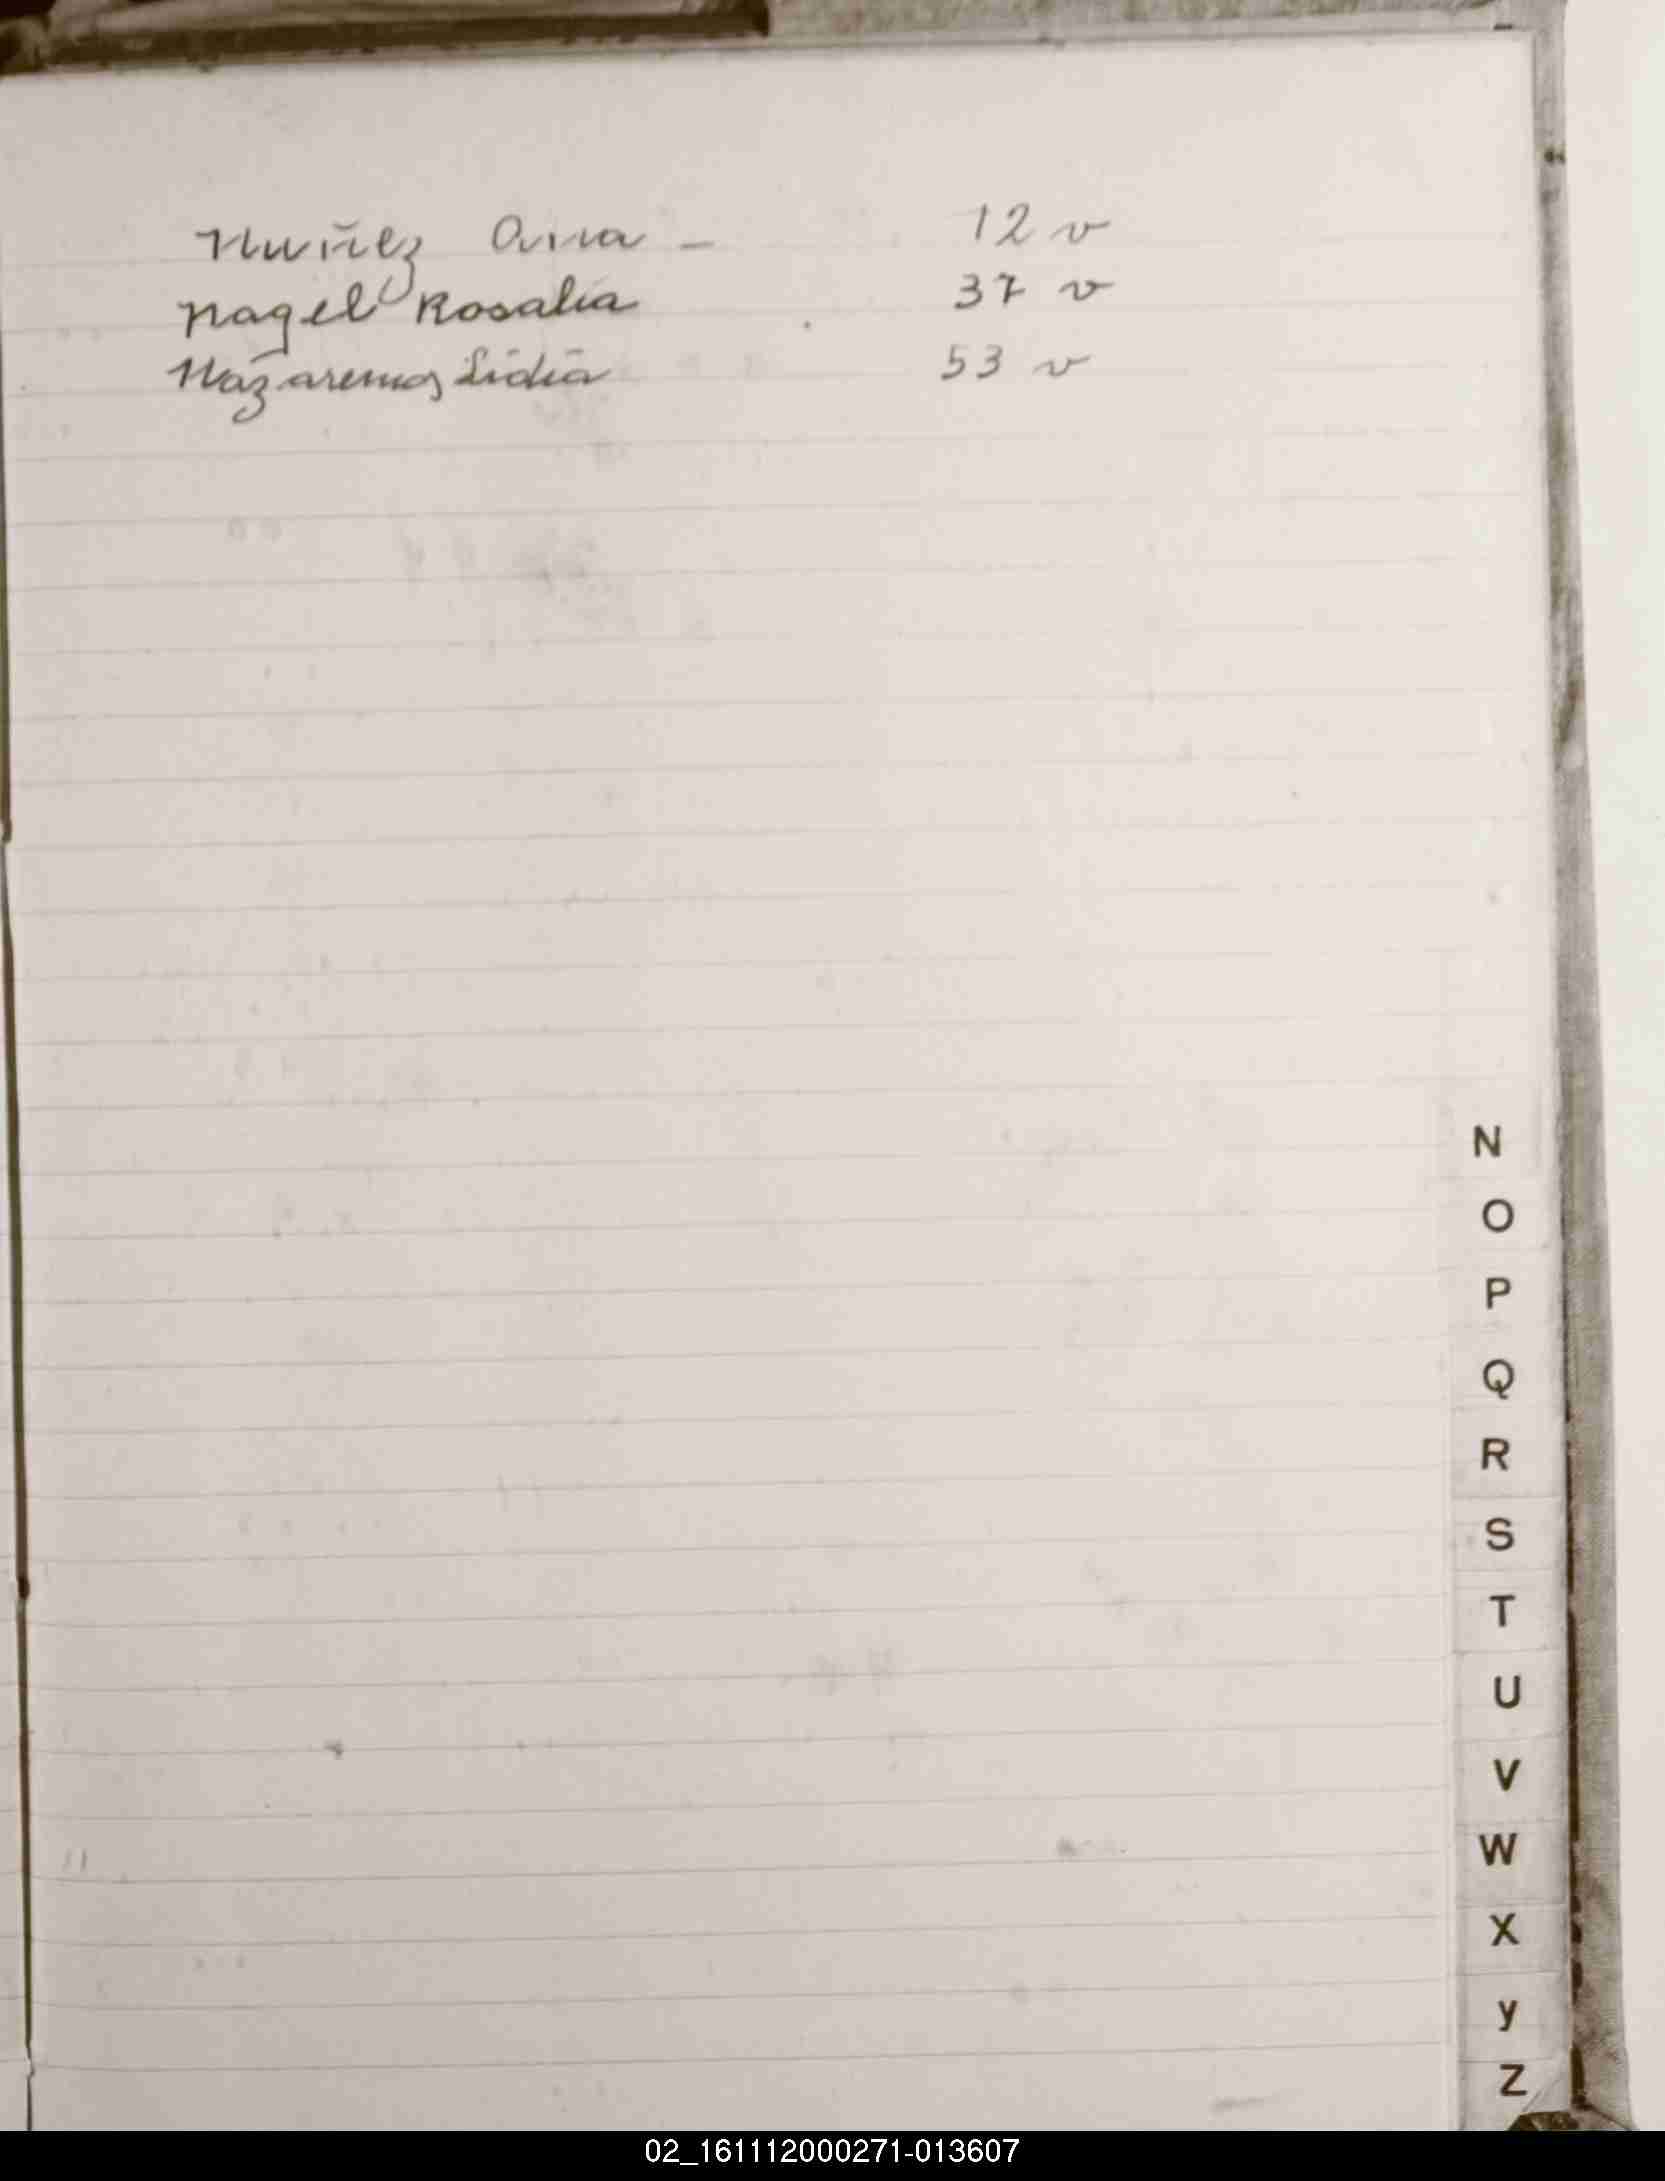 Nuñez Ana - 12 v
Nagel Rosalia 37 v
Nazarenos Lidia 53 v
N
O
P
Q
R
S
T
U
V
W
X
y
Z
02_161112000271-013607